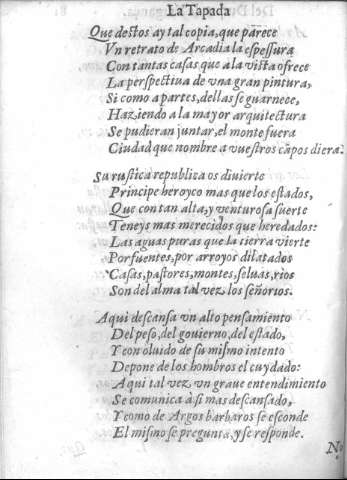 La Tapada
Que destos ay tal copia, que parece
Vn retrato de Arcadia la espessura
Con tantas casas que a la vista ofrece
La perspectiua de vna gran pintura,
Si como a partes, dellas se guarnece,
Haziendo a la mayor arquitectura
Se pudieran juntar, el monte fuera
Ciudad que nombre a vuestros cãpos diera.
Su rustica republica os diuierte
Principe heroyco mas que los estados,
Que con tan alta, y venturosa suerte
Teneys mas merecidos que heredados:
Las aguas puras que la tierra vierte
Por fuentes, por arroyos dilatados
Casas, pastores, montes, seluas, rios
Son del alma tal vez los señorios.
Aqui descansa vn alto pensamiento
Del peso, del gouierno, del estado,
Y con oluido de su mismo intento
Depone de los hombros el cuydado:
Aqui tal vez vn graue entendimiento
Se comunica à si mas descansado,
Y como de Argos barbaros se esconde
El mismo se pregunta, y se responde.